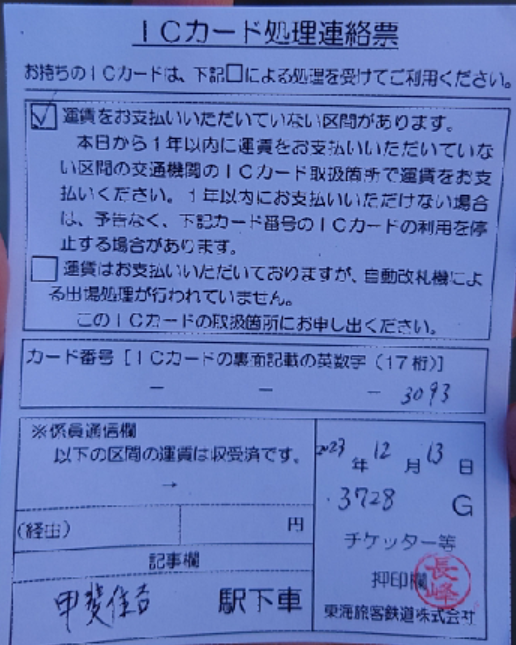 ICカード処理連絡票
お持ちのICカードは、下記□による処理を受けてご利用ください。
☑ 運賃をお支払いいただいていない区間があります。
本日から1年以内に運賃をお支払いいただいていな
い区間の交通機関のICカード取扱箇所で運賃をお支
払いください。1年以内にお支払いいただけない場合
は、予告なく、下記カード番号のICカードの利用を停
止する場合があります。
□ 運賃はお支払いいただいておりますが、自動改札機によ
る出場処理が行われていません。
このICカードの取扱箇所にお申し出ください。
カード番号[ICカードの裏面記載の英数字(17桁)]
－ － － 3093
※係員通信欄
以下の区間の運賃は収受済です。
→
(経由) 円
記事欄
甲斐住吉 駅下車
2023年12月13日
3728 G
チケッター等
押印欄
長峰
東海旅客鉄道株式会社